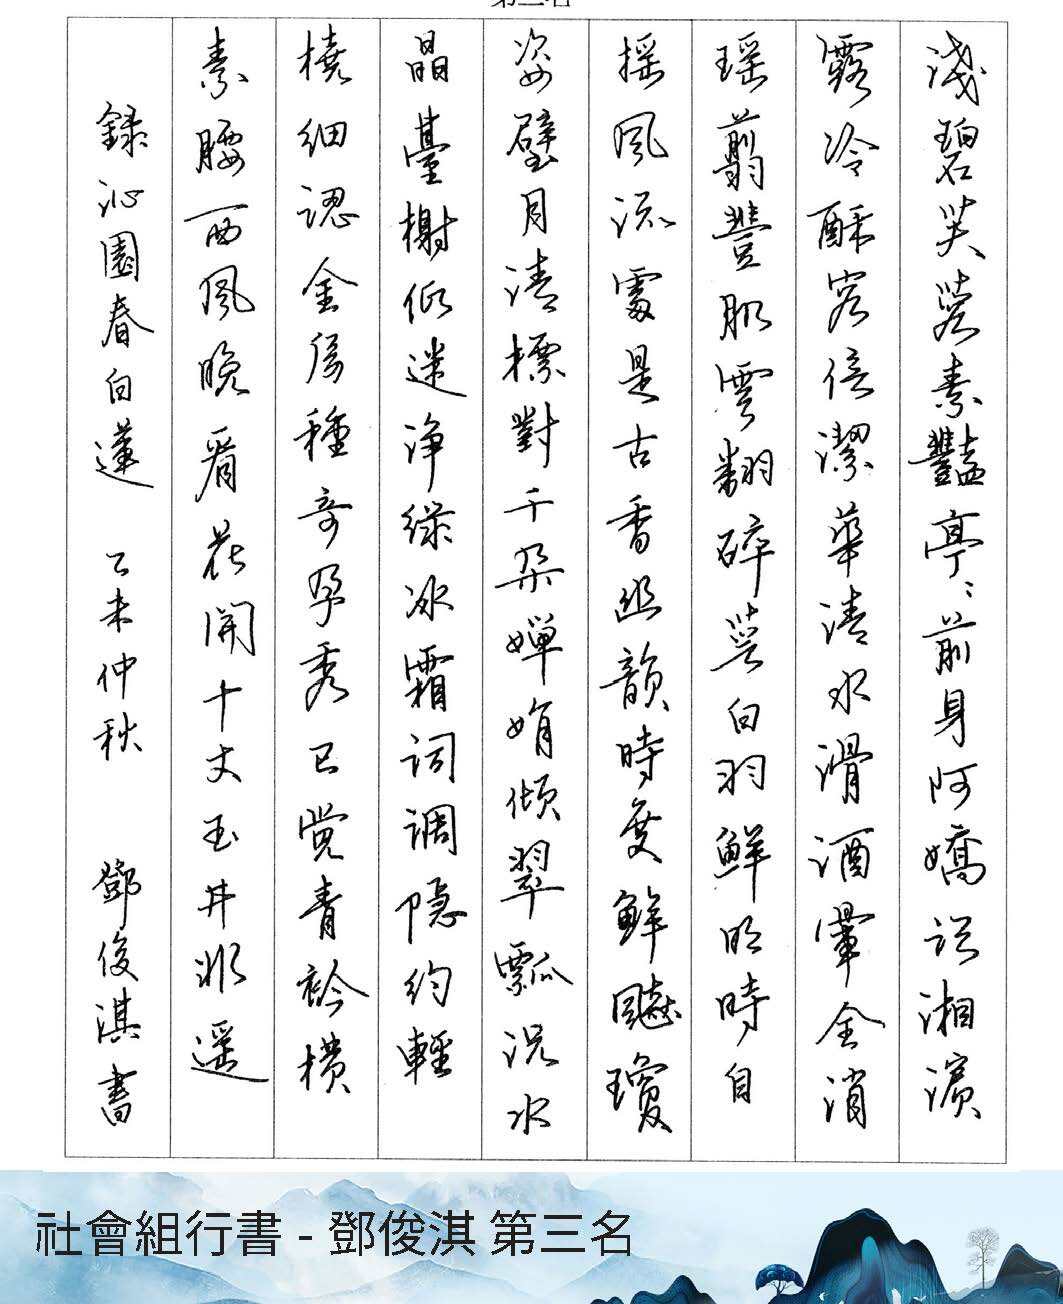 淺碧芙蓉素豔亭〻前身阿嬌訝湘濱
露冷酥容倍潔華清水滑酒暈全消
瑶翦豐肌雲翻碎萼白羽鮮明時自
搖風流處是古香幽韻時度鮮飈瓊
姿璧月清標對千朵嬋娟傾翠瓢況水
晶臺榭低迷淨綠冰霜詞調隱約輕
橈細認金房種奇孕秀已覺青衿橫
素腰西風晚看花開十丈玉井非遥
錄沁園春白蓮 乙未仲秋 鄧俊淇書
社會組行書 - 鄧俊淇 第三名